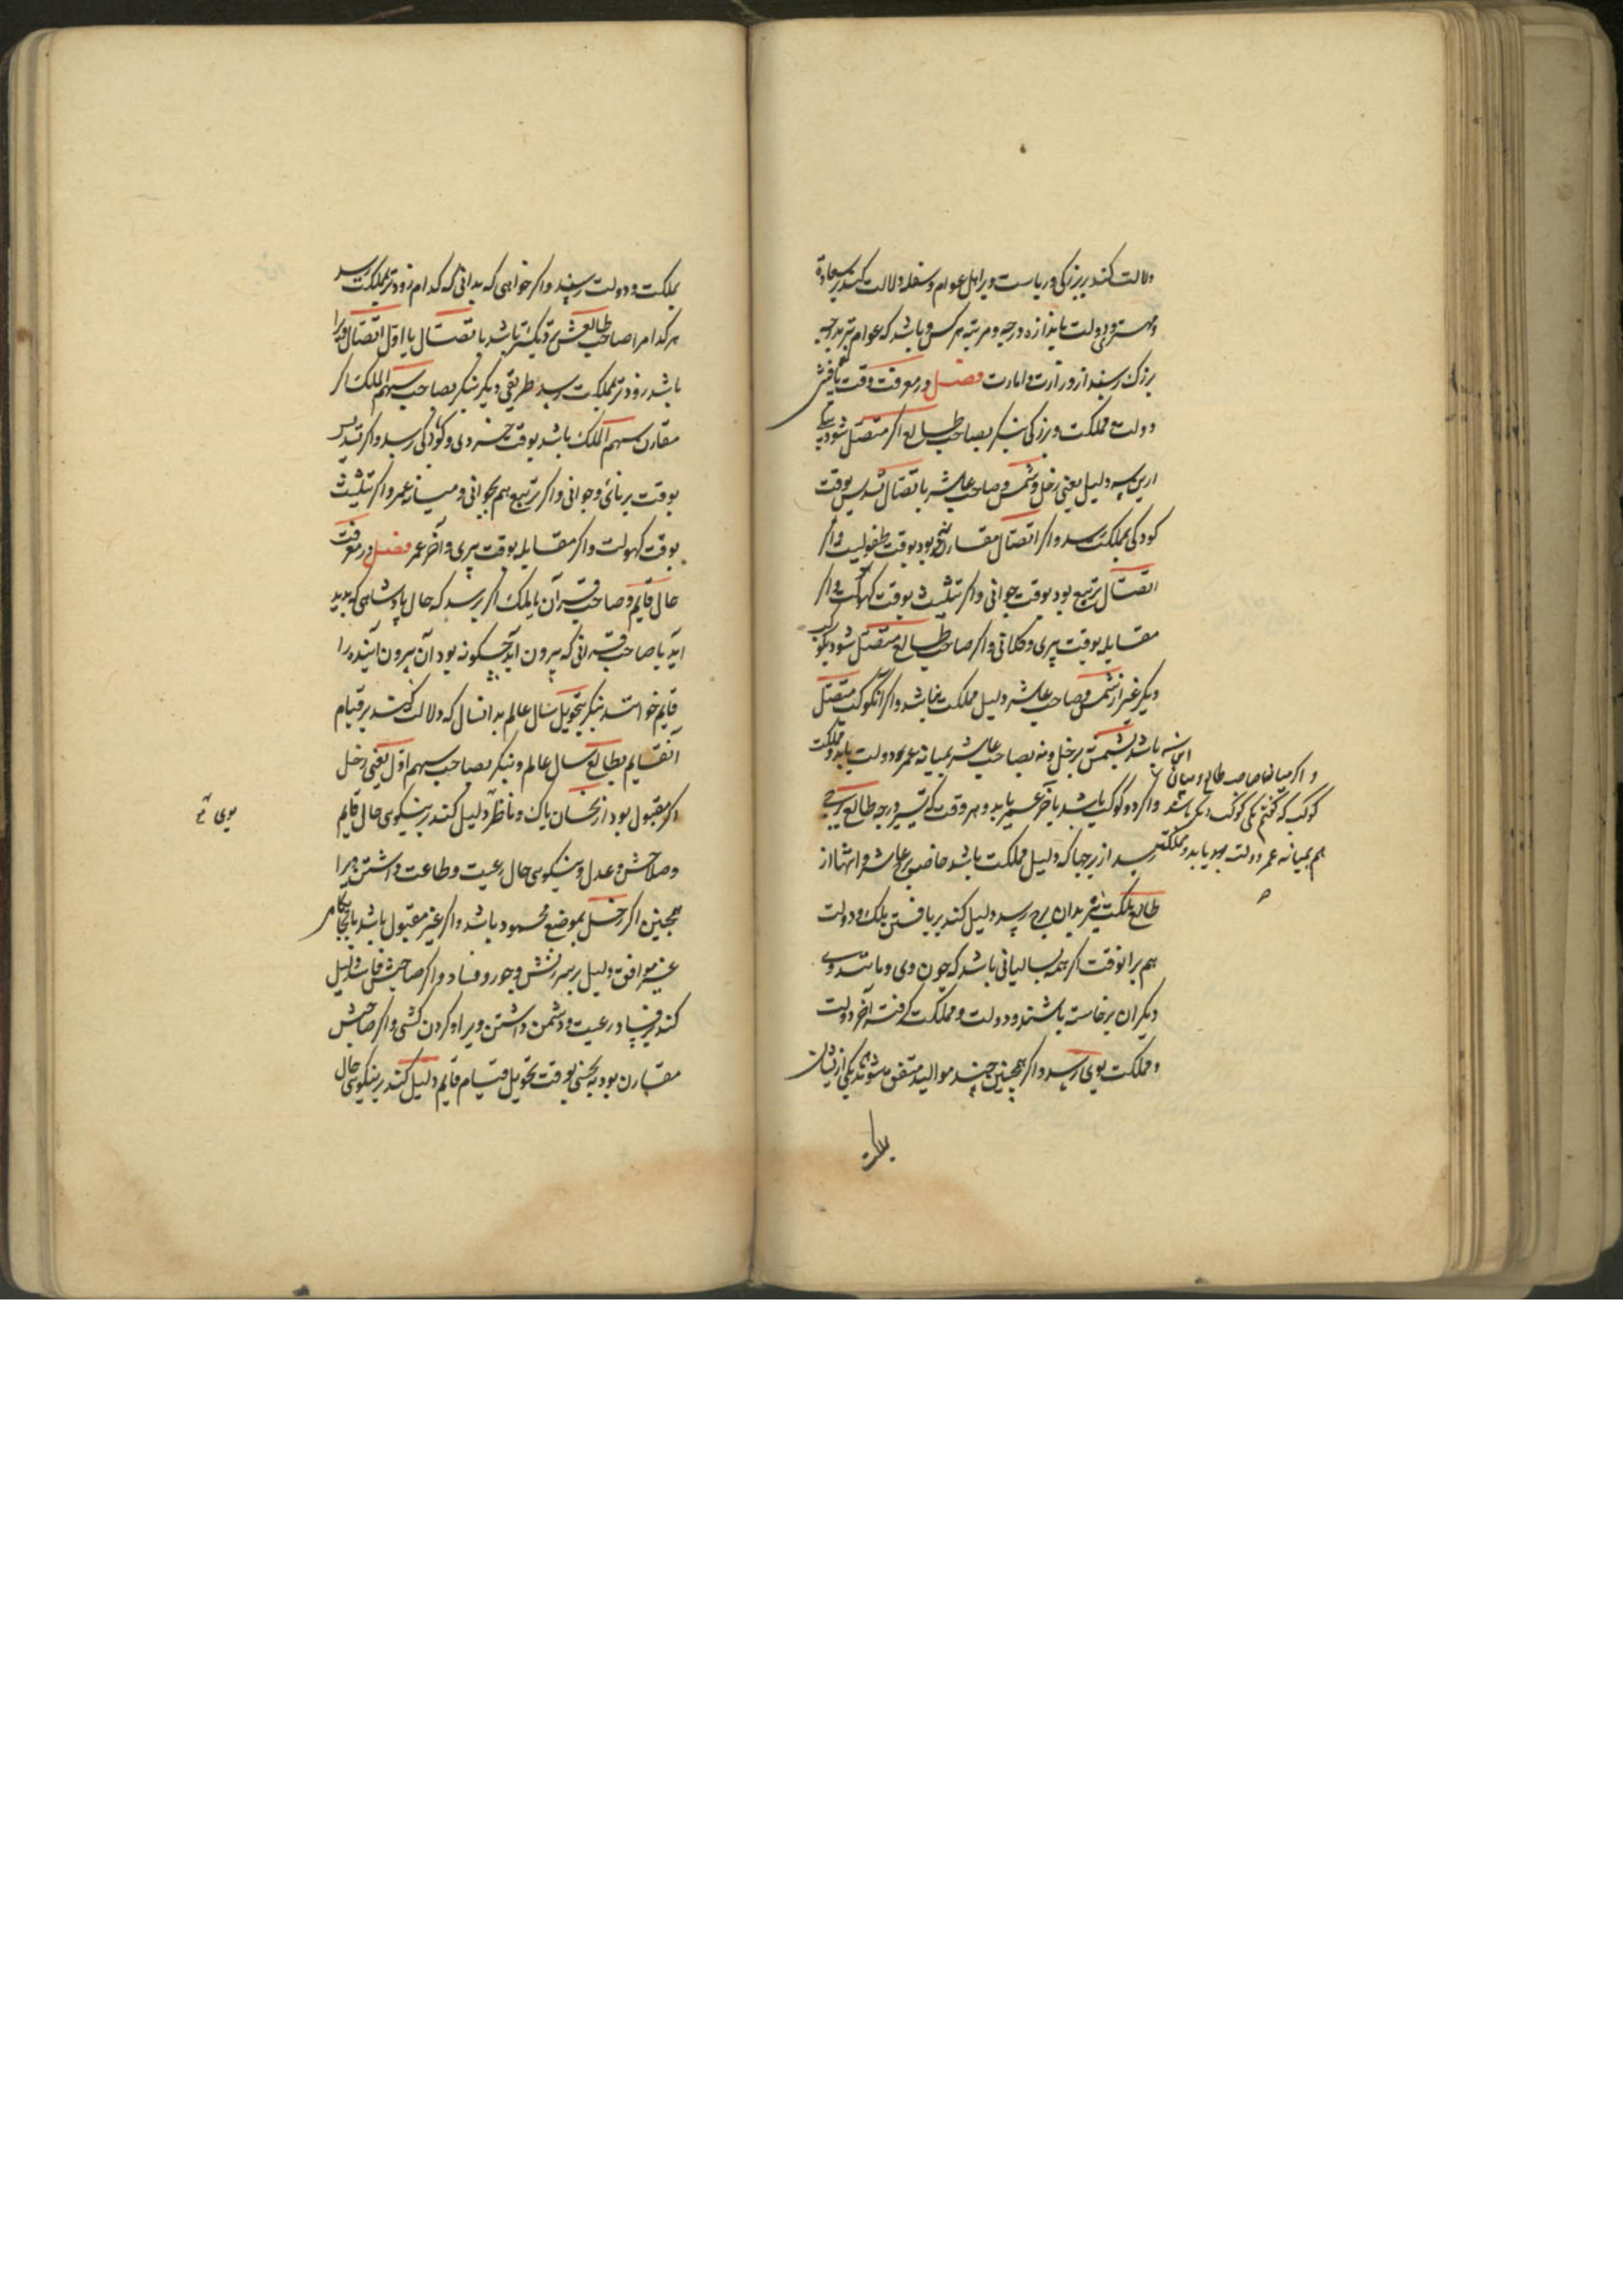 دلالت کند بر بزرگی و ریاست ویرا اهل عوام و سفله و لالت کند بر سعادة
و مهتری و دولت باندازه درجه و مرتبه هر کس و باشد که عوام نیز بدرجه
بزرک رسند از وزارت و امارت فصل در معرفت وقت یافتن
دولت و مملکت و بزرکی بنکر بصاحب طالع اکر متصل شود بیکی
ازین سه دلیل یعنی زحل و شمس و صاحب عاشر باتصال تسدیس بوقت
کودکی بمملکت رسد و اکر اتصال مقارنه بود بوقت طفولیت و اکر
اتصال تربیع بود بوقت جوانی و اکر تثلیث بوقت کهولت و اکر
مقابله بوقت پیری و کلانی و اکر صاحب طالع متصل شود بکوکب
دیکر غیر از شمس و صاحب عاشر دلیل مملکت نباشد و اکر آنکوکب متصل
باشد بشمس بزحل و نه بصاحب عاشر بمیانه عمر دولت یابد و مملکت
و اکر میانه صاحب طالع و میان این سه
کوکب که کفتم یکی کوکب دیکر باشد
هم بمیانه عمر دولت یابد و مملکت
و اکر دو کوکب باشد بآخر عمر یابد و هر وقت که تسییر درجه طالع ببرجی
رسد از برجها که دلیل مملکت باشد خاصه برج عاشر و انتها از
طالع مملکت نیز بدان برج رسد دلیل کند بر یافتن ملک و دولت
هم بر آنوقت اکر همه بسالیانی باشد که چون وی و مانند وی
دیکران برخاسته باشند و دولت و مملکت کرفته آخر دولت
و مملکت بوی رسد و اکر همچنین چند موالید متفق شوند یکی ازیشان
بملکت
بملکت و دولت رسند و اکر خواهی که بدانی که کدام زودتر بملکت رسد
هر کدام را صاحب طالعش نزدیکتر باشد باتصال یا اول اتصال او را
باشد زودتر بملکت رسد طریقی دیکر بنکر بصاحب سهم الملک اکر
مقارن سهم الملک باشد بوقت خردی و کودکی رسد و اکر تسدیس
بوقت برنائی و جوانی و اکر تربیع هم بجوانی و میانه عمر و اکر تثلیث
بوقت کهولت و اکر مقابله بوقت پیری و آخر عمر فصل در معرفت
حال قایم و صاحب قرآن یا ملک اکر پرسد که حال پادشاهی که پدید
آید یا صاحب قرانی که بیرون آید چکونه بود آن بیرون آینده را
قایم خوانند بنکر بتحویل سال عالم بدانسال که دلالت کند بر قیام
آنقایم بطالع سال عالم و بنکر بصاحب سهم اول یعنی زحل
اکر مقبول بود از نحسان پاک و ناظر دلیل کند بر نیکویی حال قایم
بوی
و صلاحش و عدل و نیکویی حال رعیت و طاعت داشتن ویرا
همچنین اکر زحل بموضع محمود باشد و اکر غیر مقبول باشد یا بجایگاهی
غیر موافق دلیل بر سرزنش و جور و فساد و اکر صاحبش فاسد دلیل
کند بر فساد رعیت و دشمن داشتن ویرا و کردن کشی و اکر صاحبش
مقارن بود بنحسی بوقت تحویل قیام قایم دلیل کند بر نیکویی حال